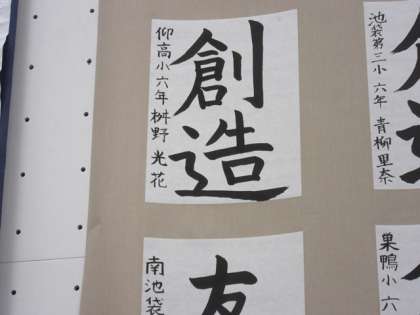 創造
仰高小六年 桝野光花
池袋第三小 六年 青柳里奈
友
南池袋
巣鴨小 六